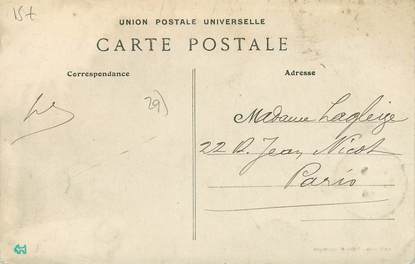 15t
UNION POSTALE UNIVERSELLE
CARTE POSTALE
Correspondance
Adresse
29)
Madame Lagleize
22 R. Jean Nicot
Paris